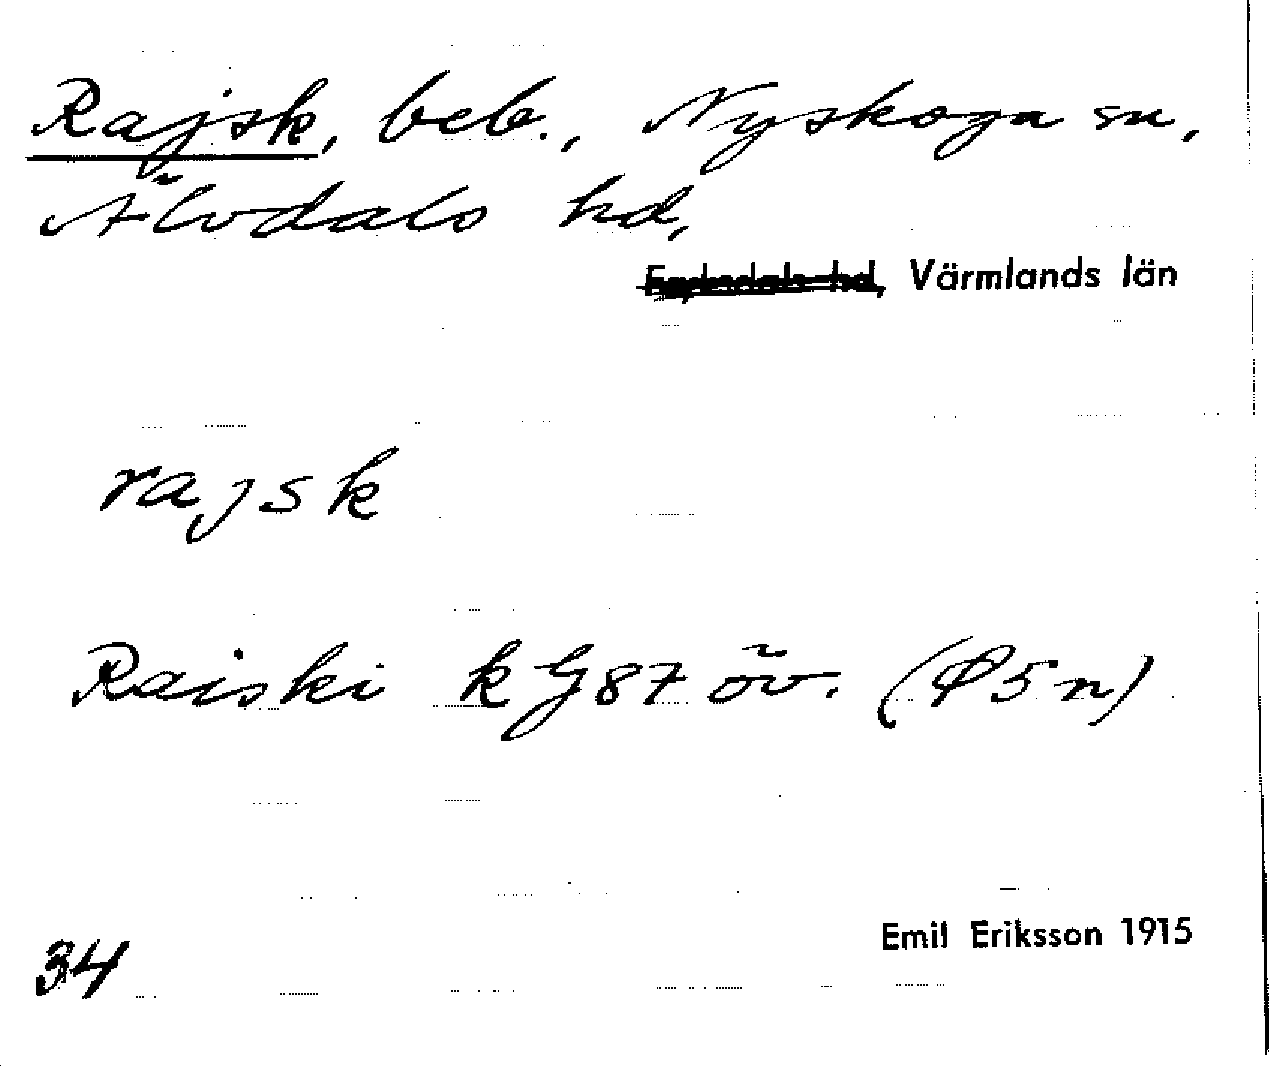 Rajsk, beb., Nyskoga sn,
Älvdals hd,
Fryksdals hd, Värmlands län
rajsk
Raiski k G 87 öv. (P5n)
Emil Eriksson 1915
34